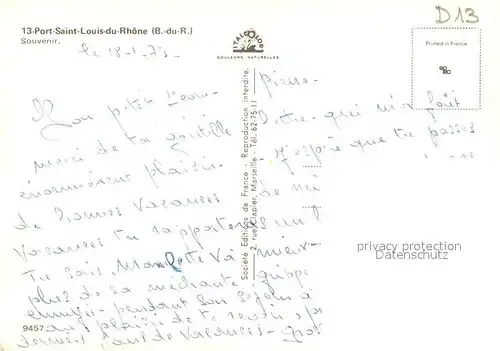 13-Port-Saint-Louis-du-Rhône (B.-du-R.)
Souvenir.
D13
Printed in France
ITALCOLOR
COULEURS NATURELLES
Société Editions de France - Reproduction interdite.
2, rue Clapier, Marseille - Tél. 62-75-11
le 18-1-73-
Mon petit Jean-
pierre-
merci de ta gentille
lettre qui m'a fait
énormément plaisir-
J'espère que tu passes
de bonnes vacances
Vacances tu rapporteras
Tu sais Manlette va
mieux-
plus de sa méchante grippe
pendant son séjour à
au plaisir de te revoir
derniers jours de vacances- gros
privacy protection
Datenschutz
9457